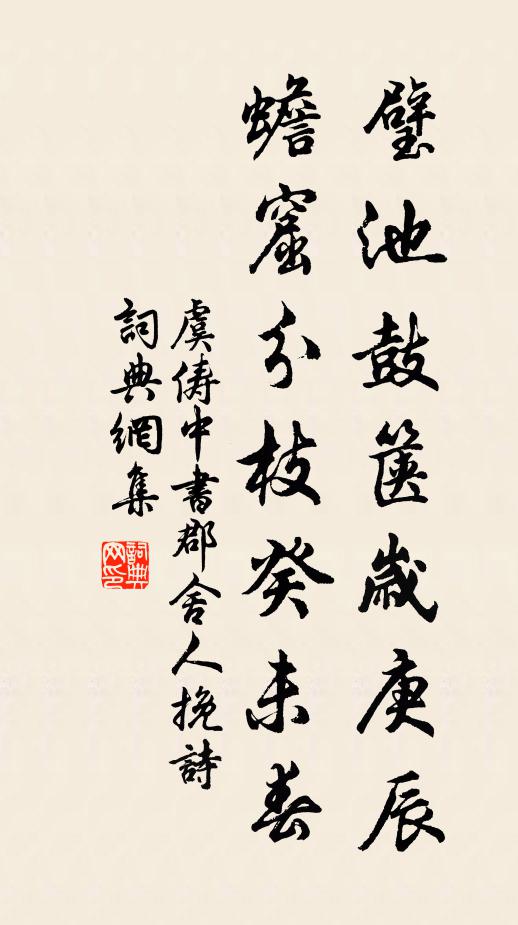 璧池鼓篋歲庚辰
蟾窟分枝癸未春
虞儔中書郡舍人挽詩
詞典網集
詞典
网印